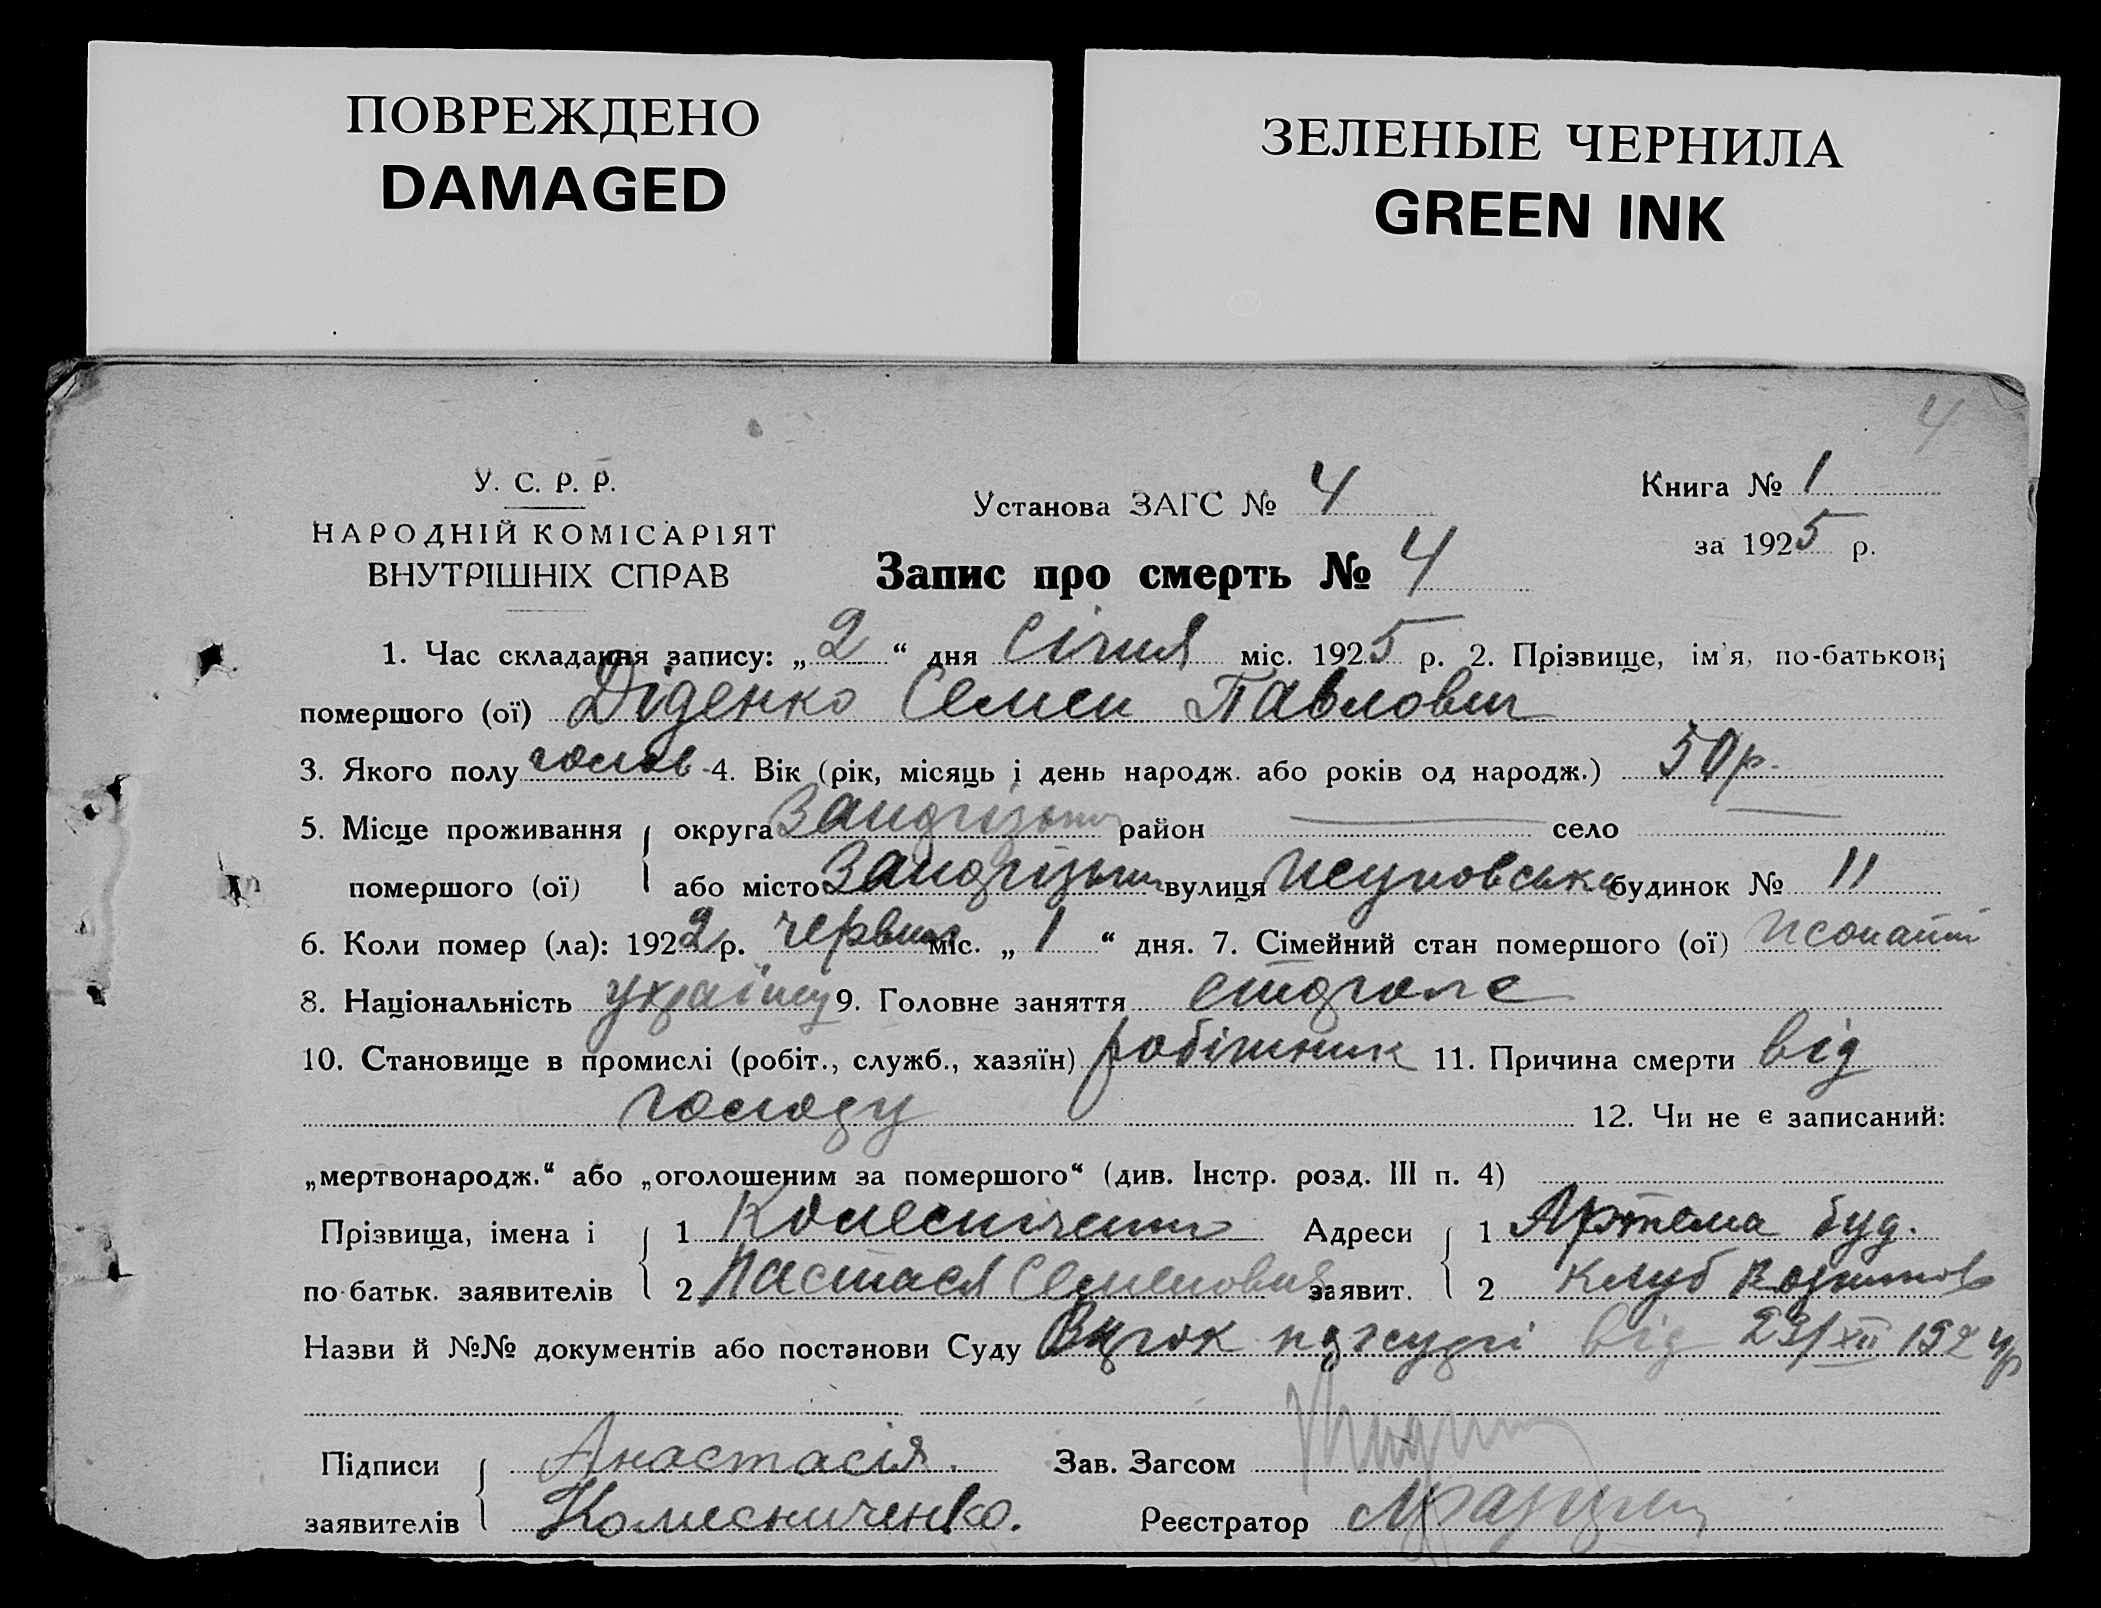 ПОВРЕЖДЕНО
DAMAGED
ЗЕЛЕНЫЕ ЧЕРНИЛА
GREEN INK
4
У. С. Р. Р.
НАРОДНІЙ КОМІСАРІЯТ
ВНУТРІШНІХ СПРАВ
Установа ЗАГС № 4
Книга № 1
за 1925 р.
Запис про смерть № 4
1. Час складання запису: „2“ дня Січня міс. 1925 р. 2. Прізвище, ім'я, по-батькові
помершого (ої) Діденко Семен Павлович
3. Якого полу 4. Вік (рік, місяць і день народж. або років од народж.) 50 р.
5. Місце проживання округа район село
помершого (ої) або місто вулиця будинок № 11
6. Коли помер (ла): 1922 р. червня міс. „1“ дня. 7. Сімейний стан помершого (ої)
8. Національність 9. Головне заняття
10. Становище в промислі (робіт., служб., хазяїн) робітник 11. Причина смерти від
голоду 12. Чи не є записаний:
„мертвонародж.“ або „оголошеним за помершого“ (див. Інстр. розд. III п. 4)
Прізвища, імена і 1 Колесніченко Адреси 1 Артема буд.
по батьк. заявителів 2 Настася Семеновна заявит. 2 Клуб
Назви й №№ документів або постанови Суду від 23/XII 1924 р
Підписи Анастасія. Зав. Загсом
заявителів Колесниченко. Реєстратор